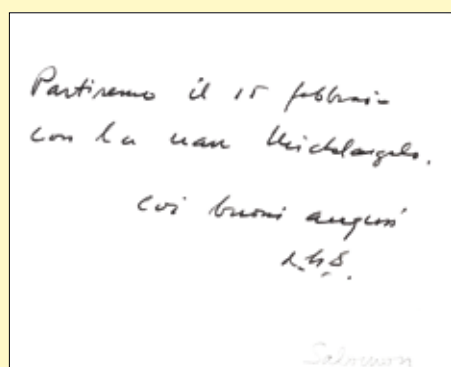 Partiremo il 15 febbraio
con la nave Michelangelo.
Coi buoni auguri
Salmon